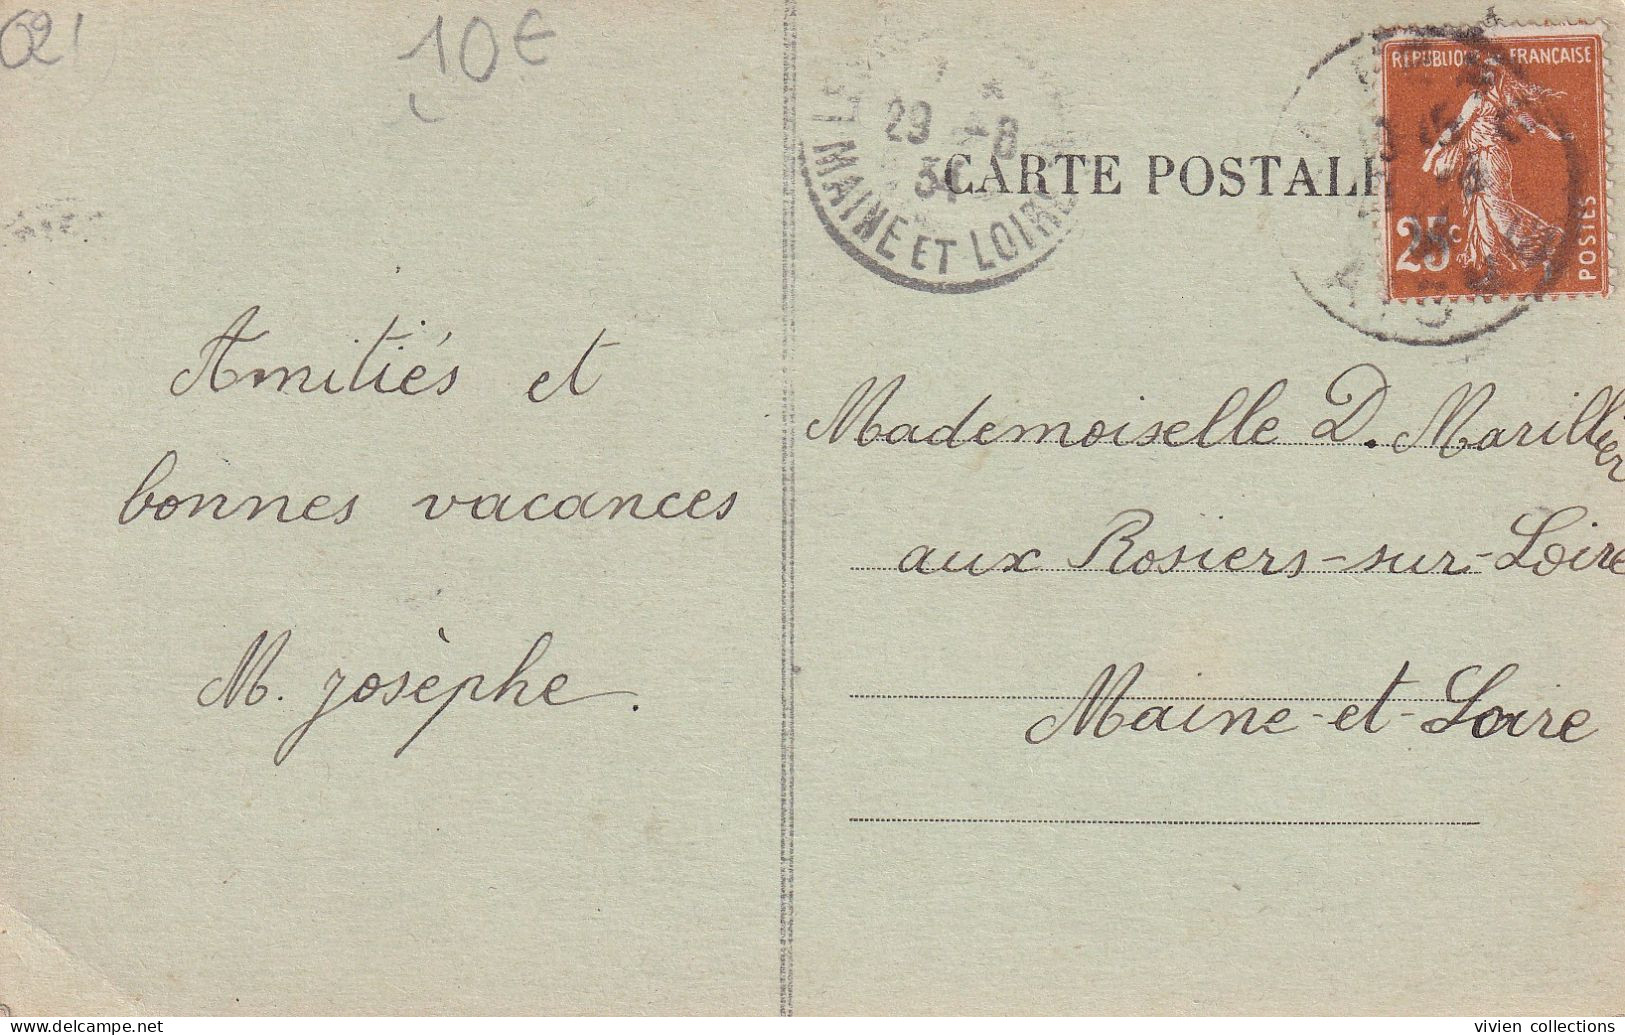 021
10€
29 -8
31
MAINE ET LOIRE
CARTE POSTALE
REPUBLIQUE FRANÇAISE
25c
POSTES
Amitiés et
bonnes vacances
M. Josèphe.
Mademoiselle D. Marillier
aux Rosiers-sur-Loire
Maine-et-Loire
delcampe.net
vivien collections